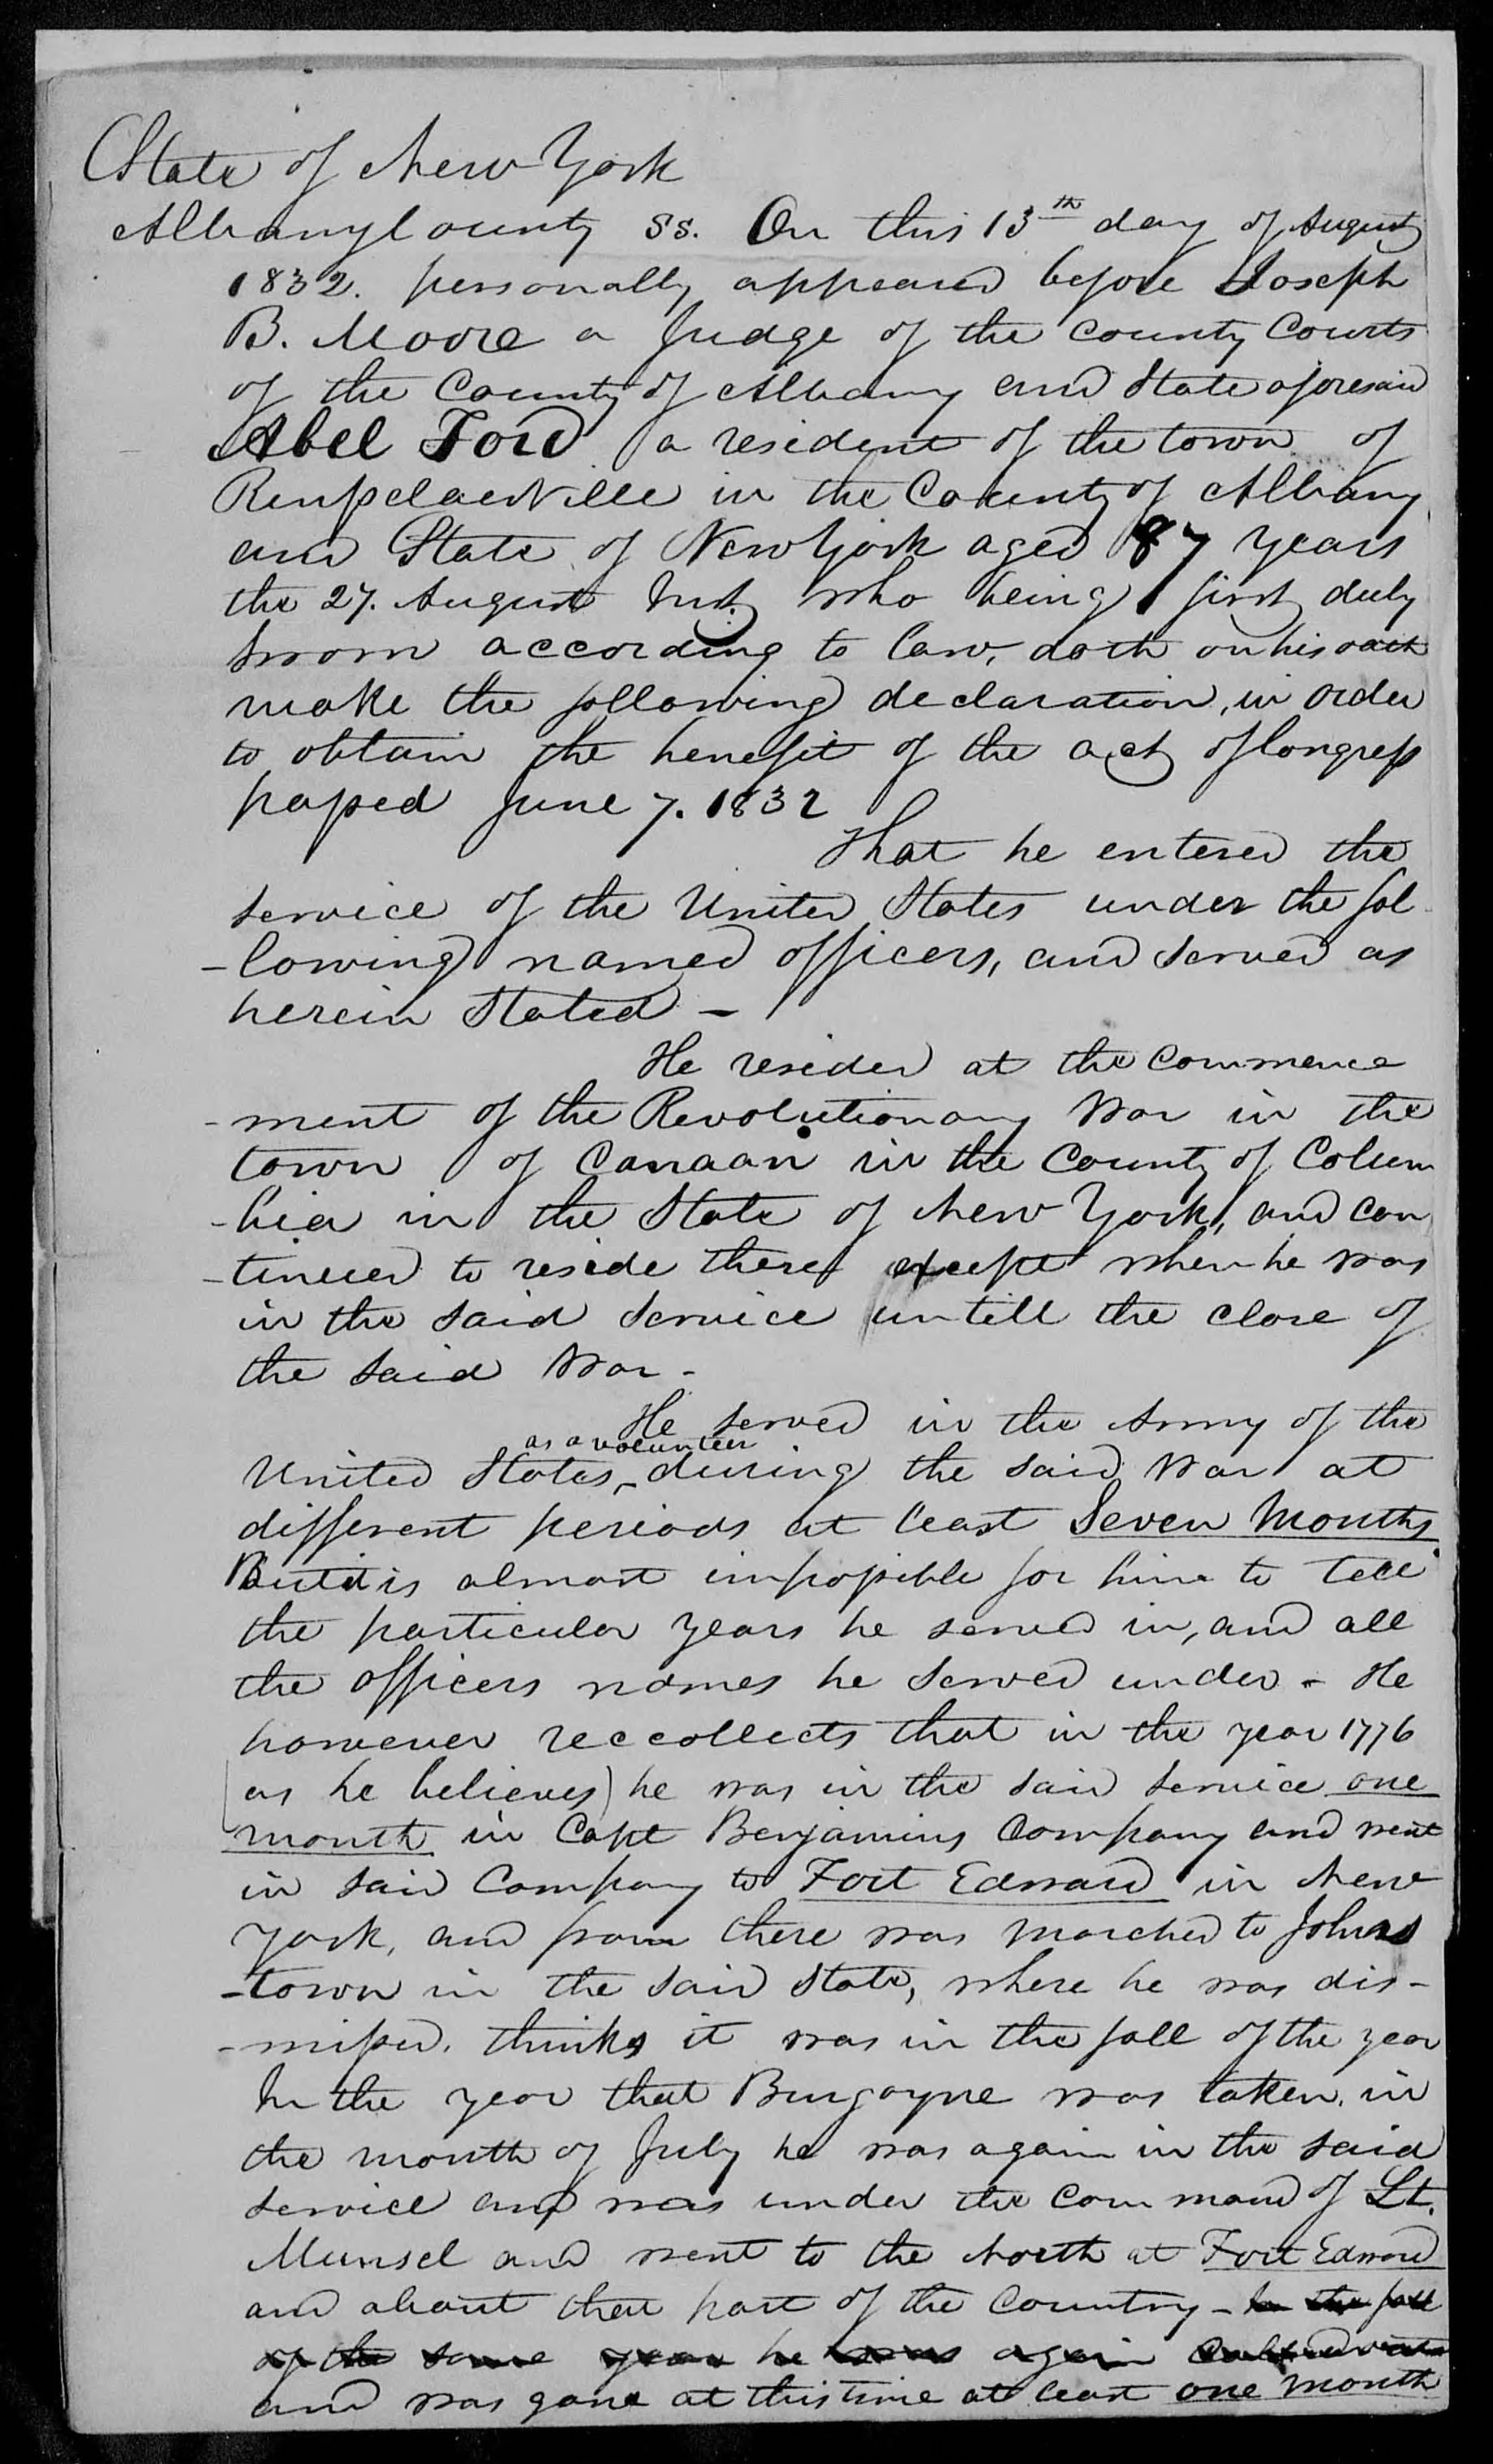 State of New York
Albany County SS. On this 13th day of August
1832. personally appeared before Joseph
B. Moore a Judge of the County Courts
of the County of Albany and State aforesaid
Abel Ford a resident of the town of
Rensselaerville in the County of Albany
and State of New York aged 87 years
the 27. August Inst, who being first duly
sworn according to law, doth on his oath
make the following declaration, in order
to obtain the benefit of the act of Congress
passed June 7. 1832
That he entered the
service of the United States under the fol
-lowing named officers, and served as
herein Stated -
He resided at the Commence
-ment of the Revolutionary War in the
town of Canaan in the County of Colum
-bia in the State of New York, and con
-tinued to reside there except when he was
in the said Service untill the close of
the said War -
He served in the Army of the
as a volunteer
United States, during the said War at
different periods at least Seven Months
But it is almost impossible for him to tell
the particular years he served in, and all
the officers names he served under - He
however reccollects that in the year 1776
(as he believes) he was in the said service one
month in Capt Benjamins Company and went
in said Company to Fort Edward in New
York, and from there was marched to Johns
-town in the said State, where he was dis-
-missed. thinks it was in the fall of the year
In the year that Burgoyne was taken, in
the month of July he was again in the said
service and was under the command of Lt.
Munsel and went to the North at Fort Edward
and about that part of the Country - In the fall
of the same year he was again
and was gone at this time at least one month